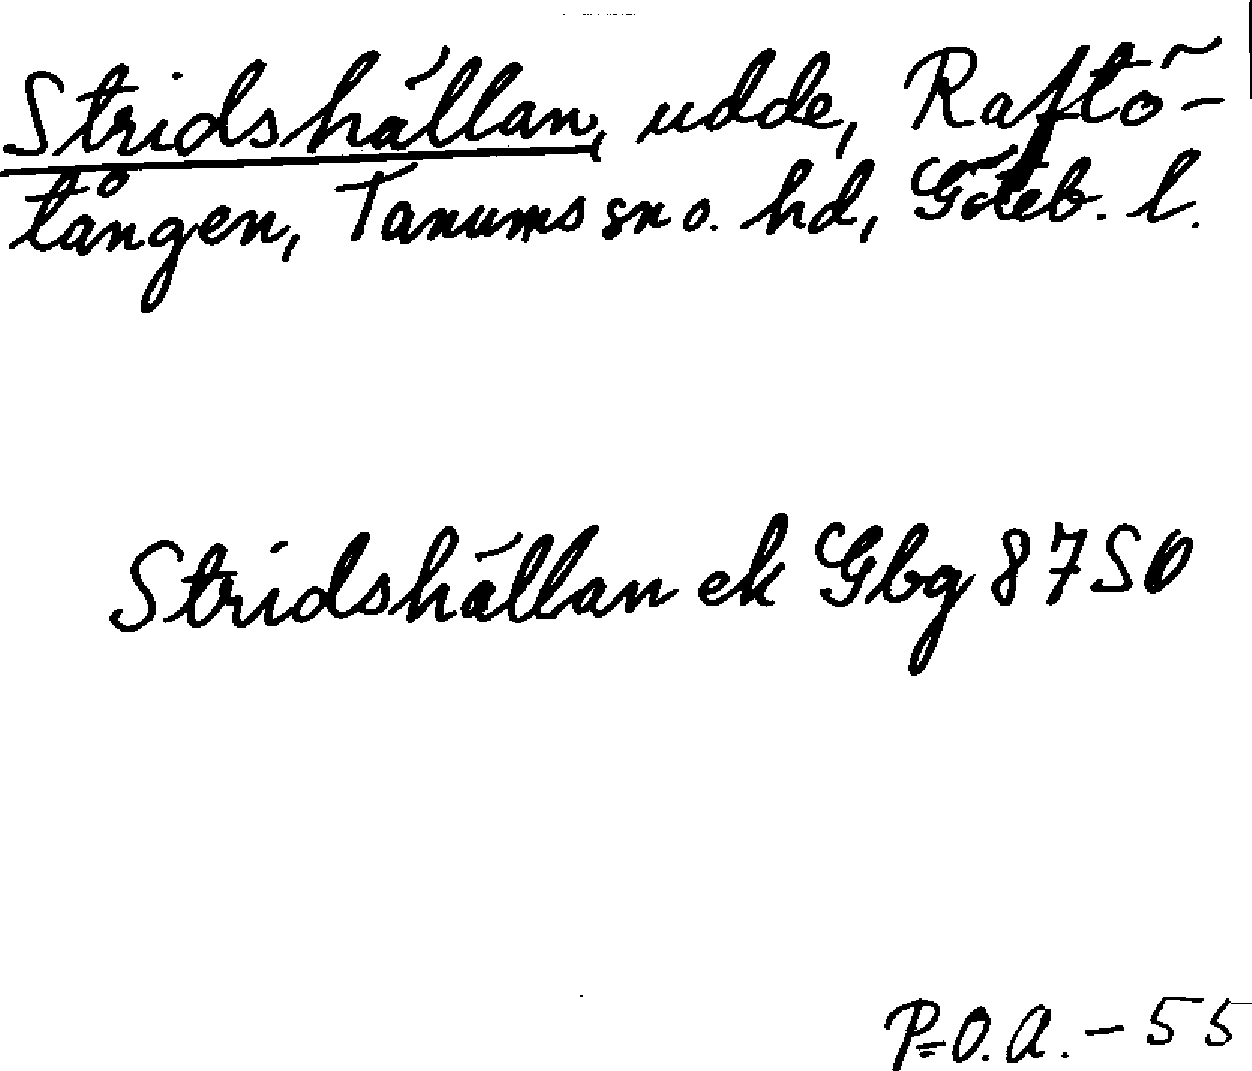 Stridshällan, udde, Raftö-
tången, Tanums sn o. hd, Göteb. l.
Stridshällan ek Gbg 87 SO
P=O.A. - 55